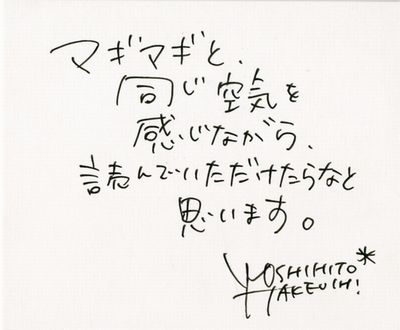 マギマギと、
同じ空気を
感じながら、
読んでいただけたらなと
思います。
YOSHIHITO*
TAKEUCHI!